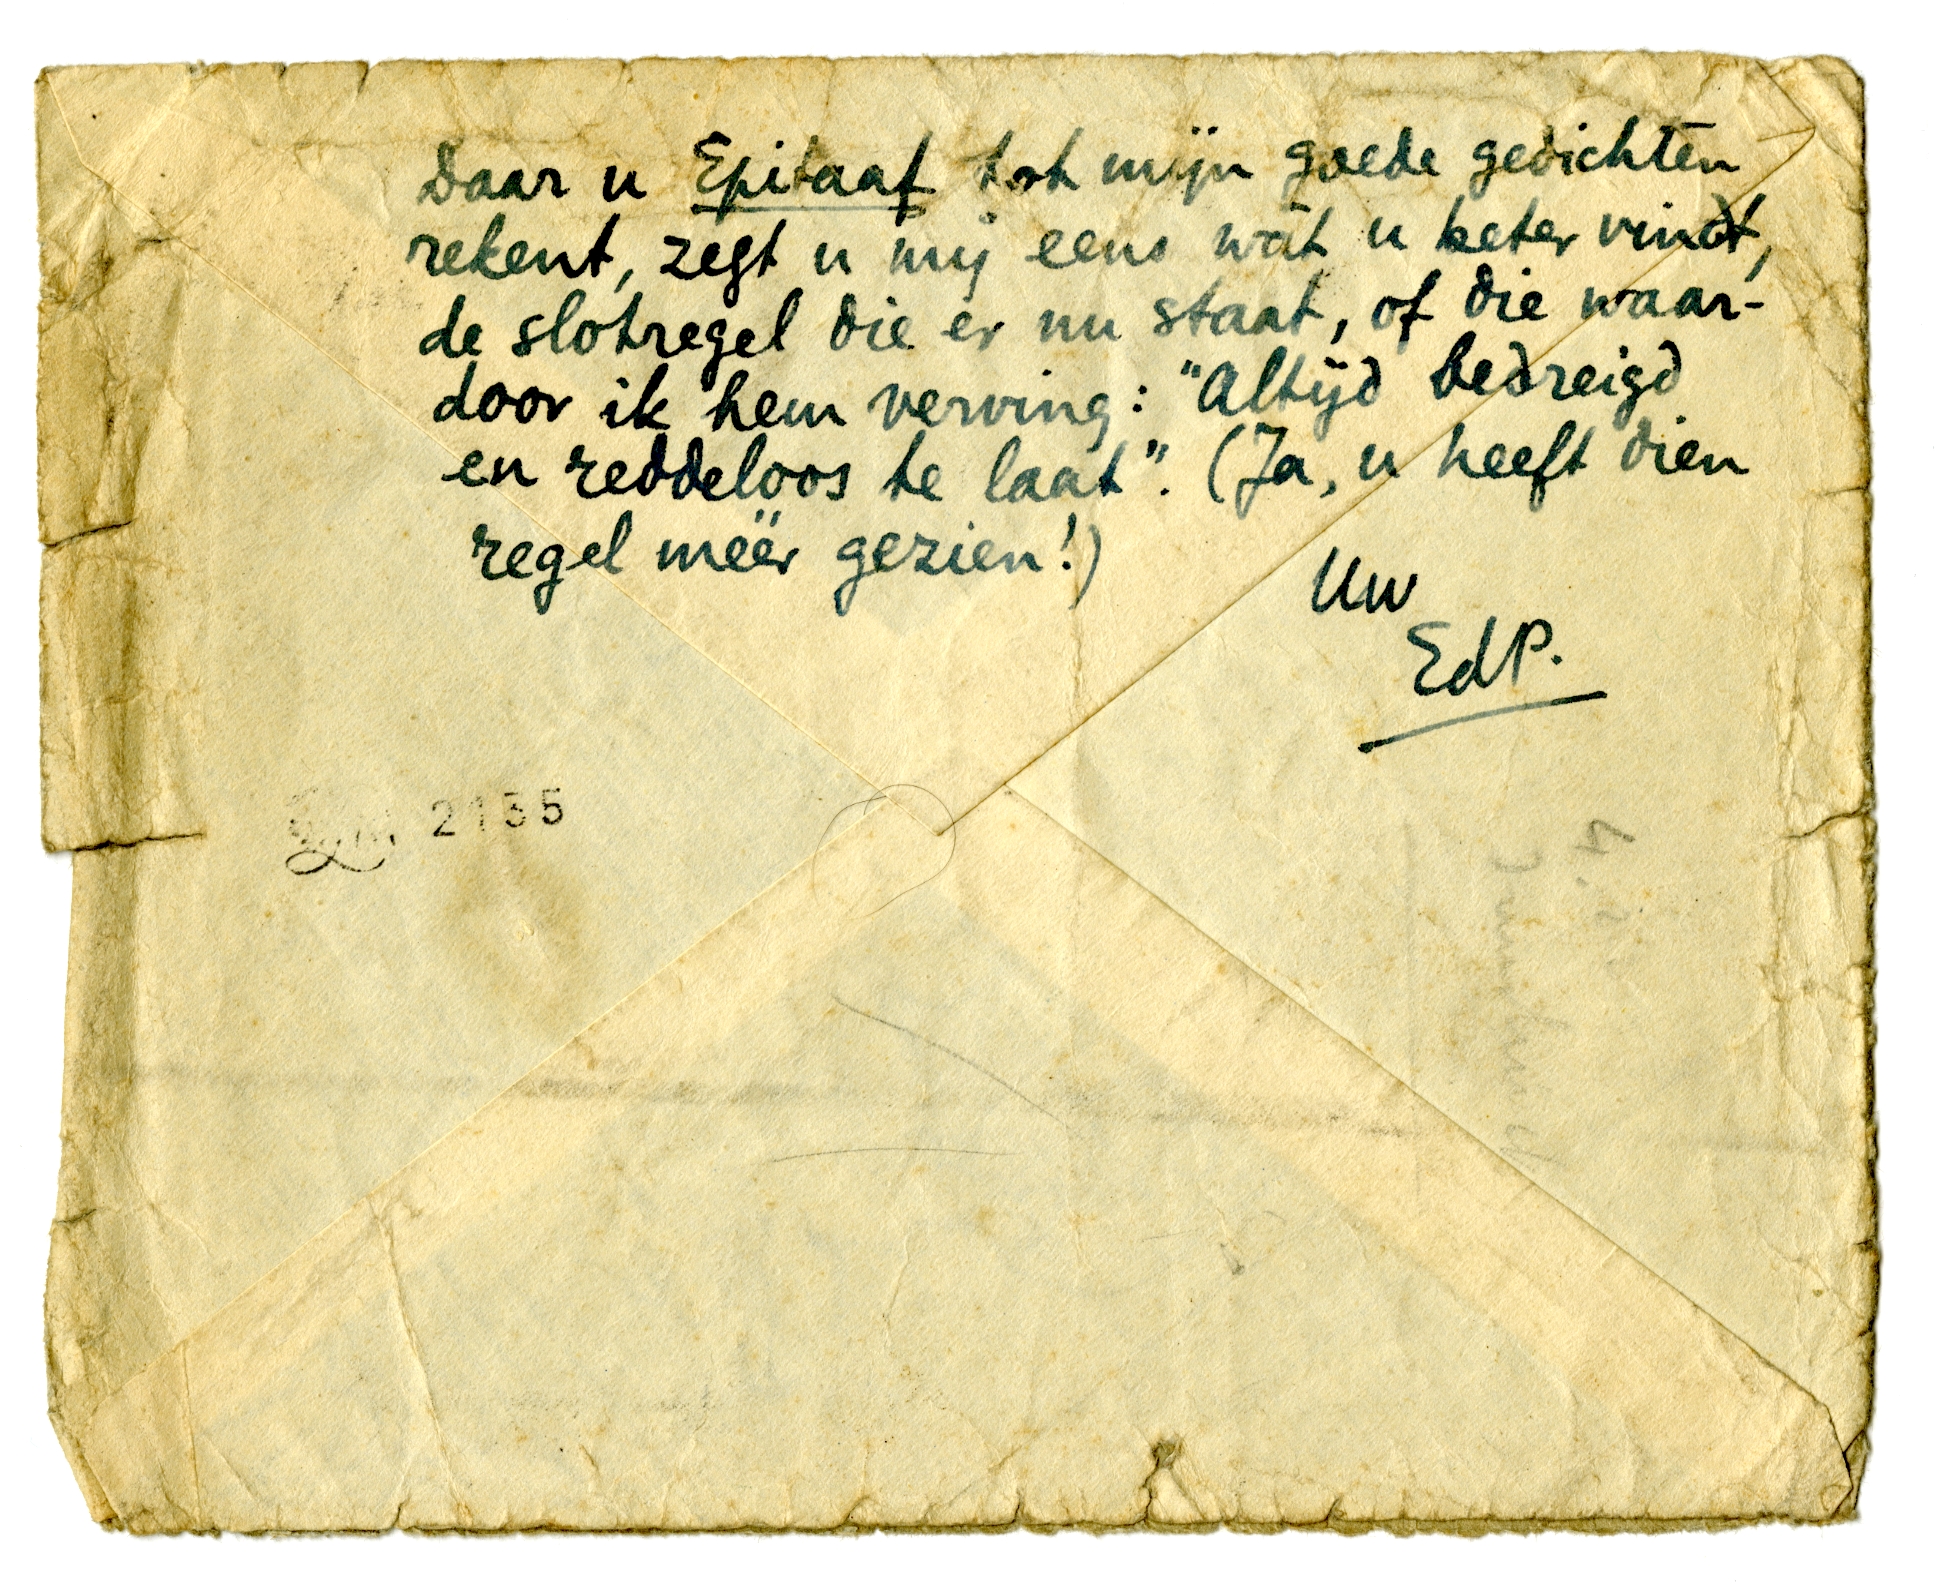 Daar u Epitaaf tot mijn goede gedichten
rekent, zegt u mij eens wát u beter vindt,
de slotregel die er nu staat, of die waar-
door ik hem verving: "Altijd bedreigd
en reddeloos te laat". (Ja, u heeft dien
regel méér gezien!)
Uw
EdP.
2135